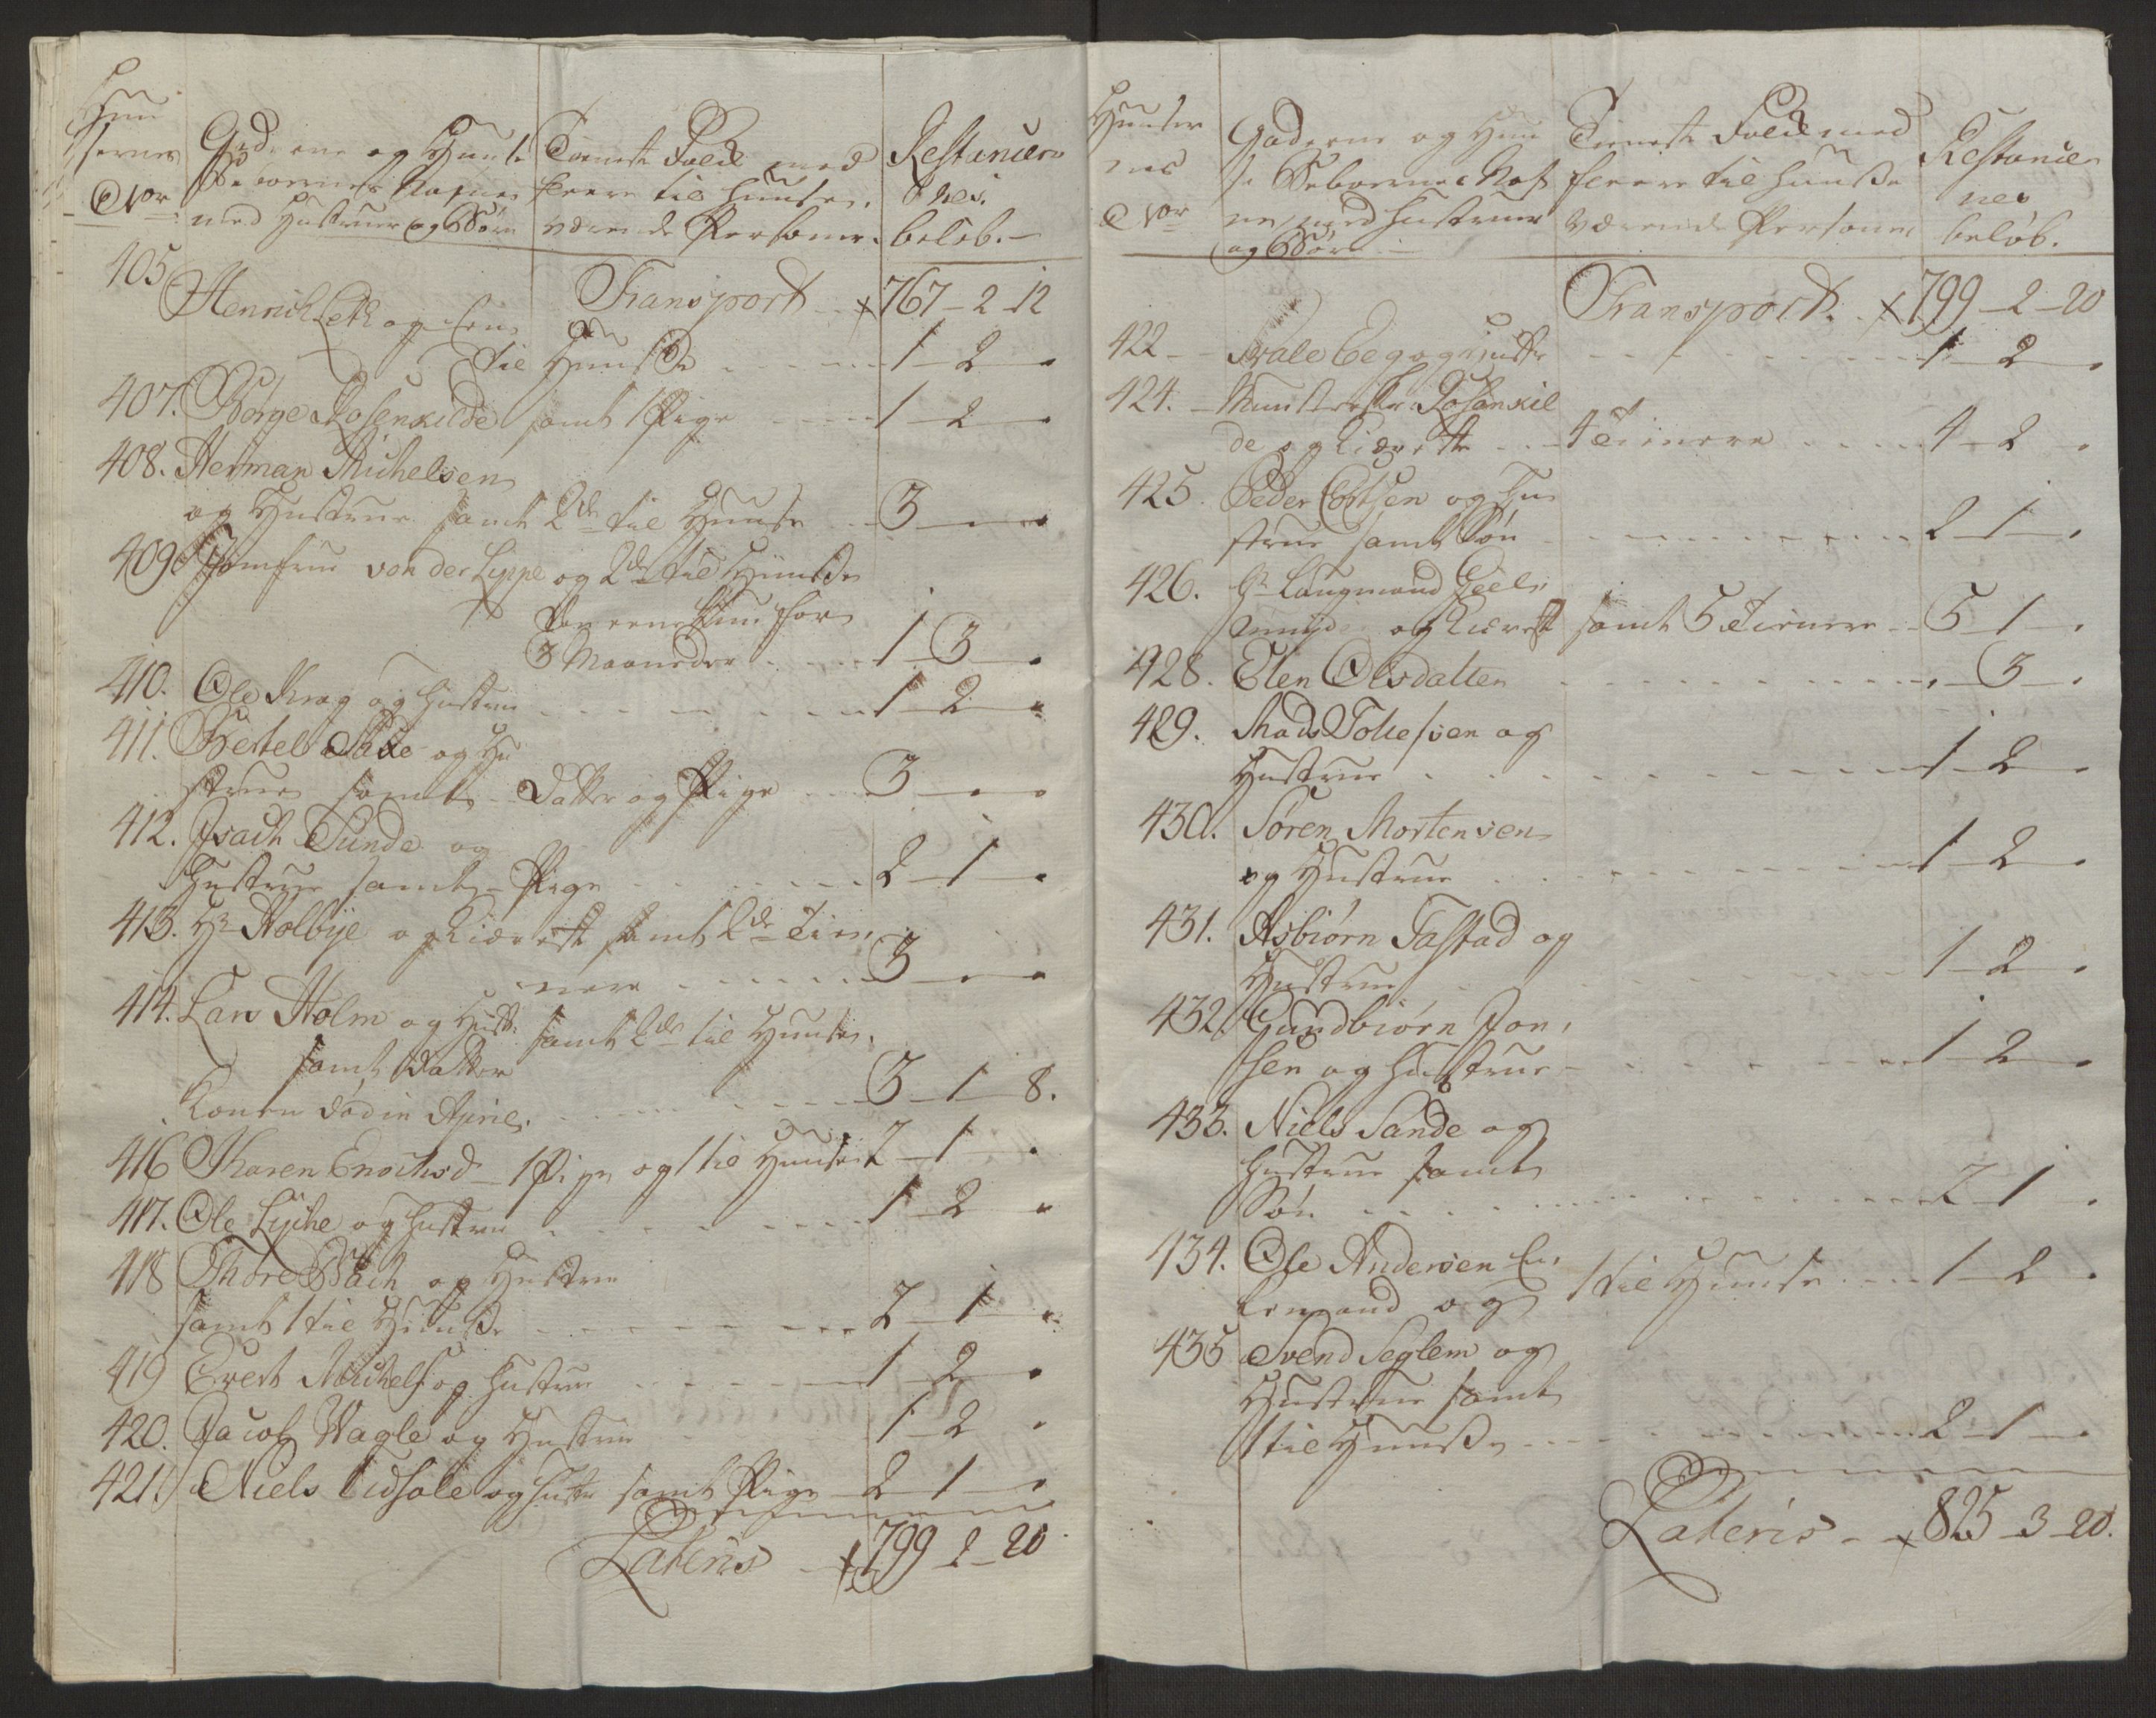 Huu
sernes
Nor
Gaderne og Huuse
Beboernes Nafne
med Hustruer og Børn
Tieneste Folck med
fleere til Huuse
værende Persohner.
Restancer
nes
beløb.
Transport 767-2-12
405 Henrich Leth og een
til Huuse 1-2-
407. Børge Rosenkilde samt 1 Pige 1-2-
408. Herman Michelsen
og Hustrue samt 2de til Huuse 3-
409 Jomfrue von der Lippe og 2de til Huuse
den eene kun for
3 Maaneder 1-3-
410. Ole Krog og Hustrue 1-2-
411. Bertel Sake og Hu
strue samt Datter og Pige 3-
412. Isach Sunde og
Hustrue samt Pige 2-1-
413. Hr Holbye og Kiæreste samt 2de Tie
nere 3-
414. Lars Holm og Hust: samt 2de til Huuse,
samt Datter
Konen død in April. 3-1-8.
416 Karen Enochsd 1 Pige og 1 til Huuse 2-1-
417. Ole Lyche og Hustrue 1-2-
418 Thore Bach og Hustrue
samt 1 til Huuse 2-1-
419 Evert Michels: og Hustrue 1-2-
420. Jacob Wagle og Hustrue 1-2-
421. Niels Eidsole og Hustr samt Pige 2-1-
Lateris 799-2-20
Huuser
nes
Nor
Gaderne og Huu
se Beboernes Naf
ne med Hustruer
og Børn
Tieneste Folck med
fleere til Huuse
værende Persohner
Restance
nes
beløb.
Transport 799-2-20
422 Svale Eeg og Hustr 1-2-
424. Rosenkil
de og Kiæreste 4 Tienere 4-2-
425. Peder Eertsen og Hu
strue samt Søn 2-1-
426. Hr Laugmand Geel
og Kiærest samt 5 Tienere 5-1-
428. Elen Olsdatter 3-
429. Mads Tollefsen og
Hustrue 1-2-
430. Søren Mortensen
og Hustrue 1-2-
431. Asbiørn Tastad og
Hustrue 1-2-
432. Gundbiørn Jon,
sen og Hustrue 1-2-
433. Niels Sande og
Hustrue samt
Søn 2-1-
434. Ole Andersen En,
kemand og 1 til Huuse 1-2-
435 Svend Seglem og
Hustrue samt
1 til Huuse 2-1-
Lateris 825-3-20.